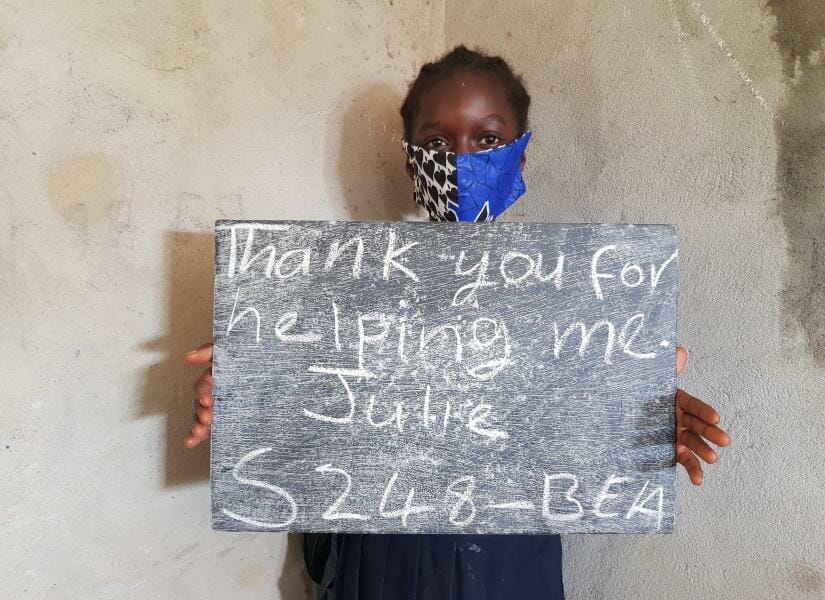 Thank you for
helping me.
Julie
S248-BEA